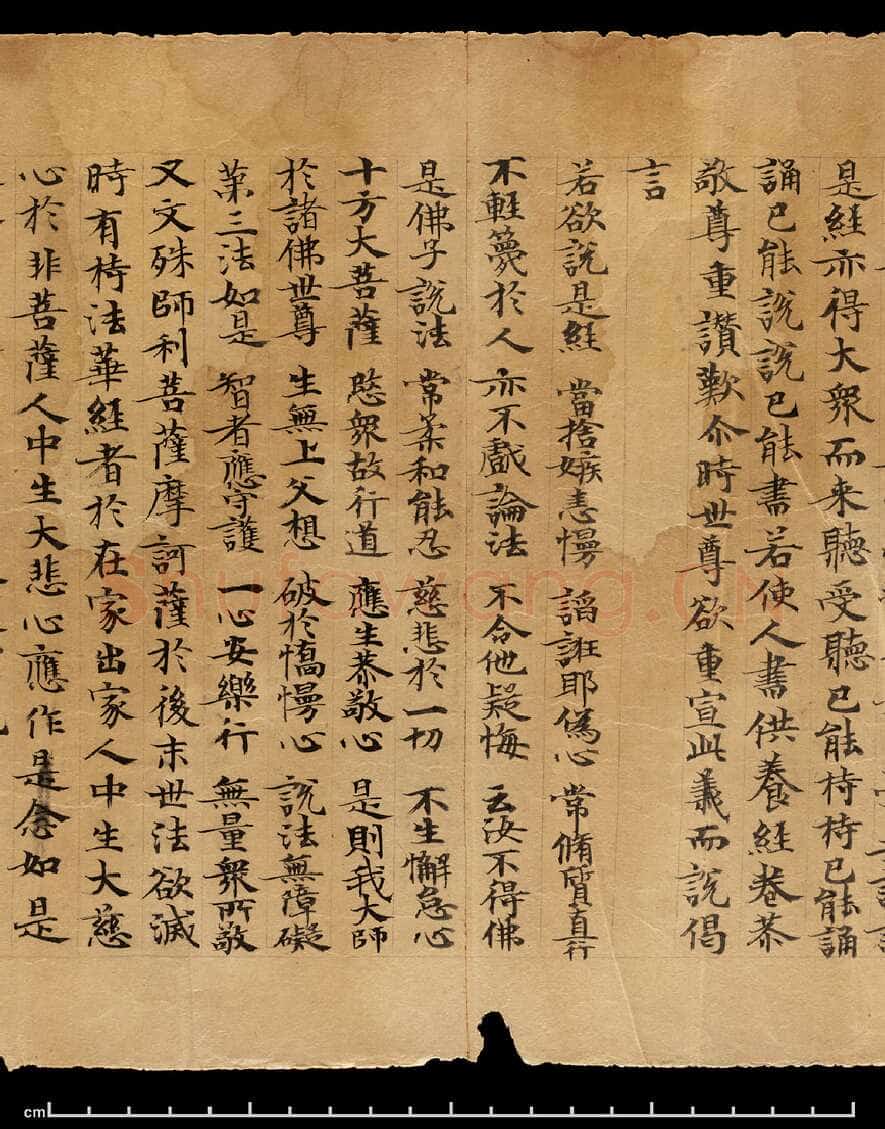 是經亦得大眾而来聽受聽已能持持已能誦
誦已能說說已能書若使人書供養經卷恭
敬尊重讃歎尒時世尊欲重宣此義而說偈
言
若欲說是經 當捨嫉恚慢 謟誑耶偽心 常脩質直行
不輕篾於人 亦不戲論法 不令他疑悔 云汝不得佛
是佛子說法 常柔和能忍 慈悲於一切 不生懈怠心
十方大菩薩 愍衆故行道 應生恭敬心 是則我大師
於諸佛世尊 生無上父想 破於憍慢心 說法無障礙
苐三法如是 智者應守護 一心安樂行 無量衆所敬
又文殊師利菩薩摩訶薩於後末世法欲滅
時有持法華經者於在家出家人中生大慈
心於非菩薩人中生大悲心應作是念如是
shufawang.cn
cm